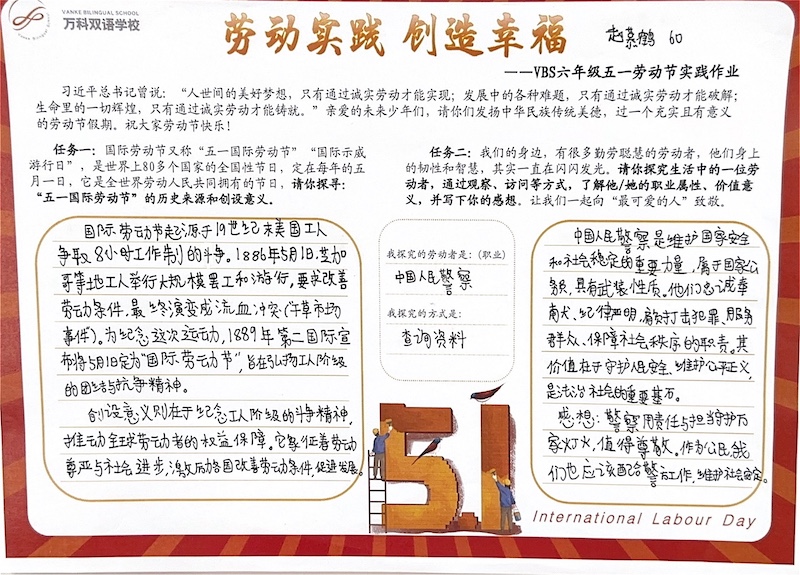 VANKE BILINGUAL SCHOOL
万科双语学校
劳动实践 创造幸福
赵慕鹤 60
——VBS六年级五一劳动节实践作业
习近平总书记曾说：“人世间的美好梦想，只有通过诚实劳动才能实现；发展中的各种难题，只有通过诚实劳动才能破解；
生命里的一切辉煌，只有通过诚实劳动才能铸就。”亲爱的未来少年们，请你们发扬中华民族传统美德，过一个充实且有意义
的劳动节假期。祝大家劳动节快乐！
任务一：国际劳动节又称“五一国际劳动节”“国际示威
游行日”，是世界上80多个国家的全国性节日，定在每年的五
月一日，它是全世界劳动人民共同拥有的节日，请你探寻：
“五一国际劳动节”的历史来源和创设意义。
国际劳动节起源于19世纪末美国工人
争取8小时工作制的斗争。1886年5月1日，芝加
哥等地工人举行大规模罢工和游行，要求改善
劳动条件，最终演变成流血冲突（干草市场
事件）。为纪念这次运动，1889年第二国际宣
布将5月1日定为“国际劳动节”，旨在弘扬工人阶级
的团结与抗争精神。
创设意义则在于纪念工人阶级的斗争精神，
推动全球劳动者的权益保障。它象征着劳动
尊严与社会进步，激励各国改善劳动条件，促进发展。
任务二：我们的身边，有很多勤劳聪慧的劳动者，他们身上
的韧性和智慧，其实一直在闪闪发光。请你探究生活中的一位劳
动者，通过观察、访问等方式，了解他/她的职业属性、价值意
义，并写下你的感想。让我们一起向“最可爱的人”致敬。
我探究的劳动者是：（职业）
中国人民警察
我探究的方式是：
查询资料
中国人民警察是维护国家安全
和社会稳定的重要力量，属于国家公
务员，具有武装性质。他们忠诚奉
献，纪律严明，肩负打击犯罪、服务
群众、保障社会秩序的职责。其
价值在于守护人民安全、维护公平正义，
是法治社会的重要基石。
感想：警察用责任与担当守护万
家灯火，值得尊敬。作为公民，我
们也应该配合警方工作，维护社会安定。
5.1
International Labour Day